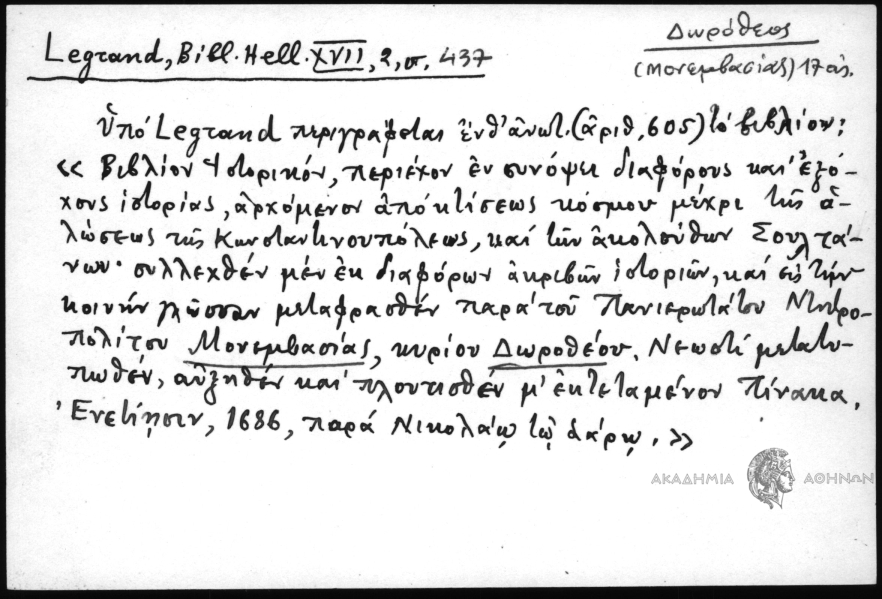 Δωρόθεος
Legrand, Bibl. Hell. XVII, 2, σ. 437
(Μονεμβασίας) 17 αἰ.
Ὑπό Legrand περιγράφεται ἐνθ' ἀνωτ. (ἀριθ. 605) τό βιβλίον:
«Βιβλίον Ἱστορικόν, περιέχον ἐν συνόψει διαφόρους καί ἐξό-
χους ἱστορίας, ἀρχόμενον ἀπό κτίσεως κόσμου μέχρι τῆς ἁ-
λώσεως τῆς Κωνσταντινουπόλεως, καί τῶν ἀκολούθων Σουλτά-
νων· συλλεχθέν μέν ἐκ διαφόρων ἀκριβῶν ἱστοριῶν, καί εἰς τήν
κοινήν γλῶσσαν μεταφρασθέν παρά τοῦ Πανιερωτάτου Μητρο-
πολίτου Μονεμβασίας, κυρίου Δωροθέου. Νεωστί μετατυ-
πωθέν, αὐξηθέν καί πλουτισθέν μ' ἐκτεταμένον Πίνακα.
Ἐνετίησιν, 1686, παρά Νικολάῳ τῷ Σάρῳ.»
ΑΚΑΔΗΜΙΑ ΑΘΗΝΩΝ